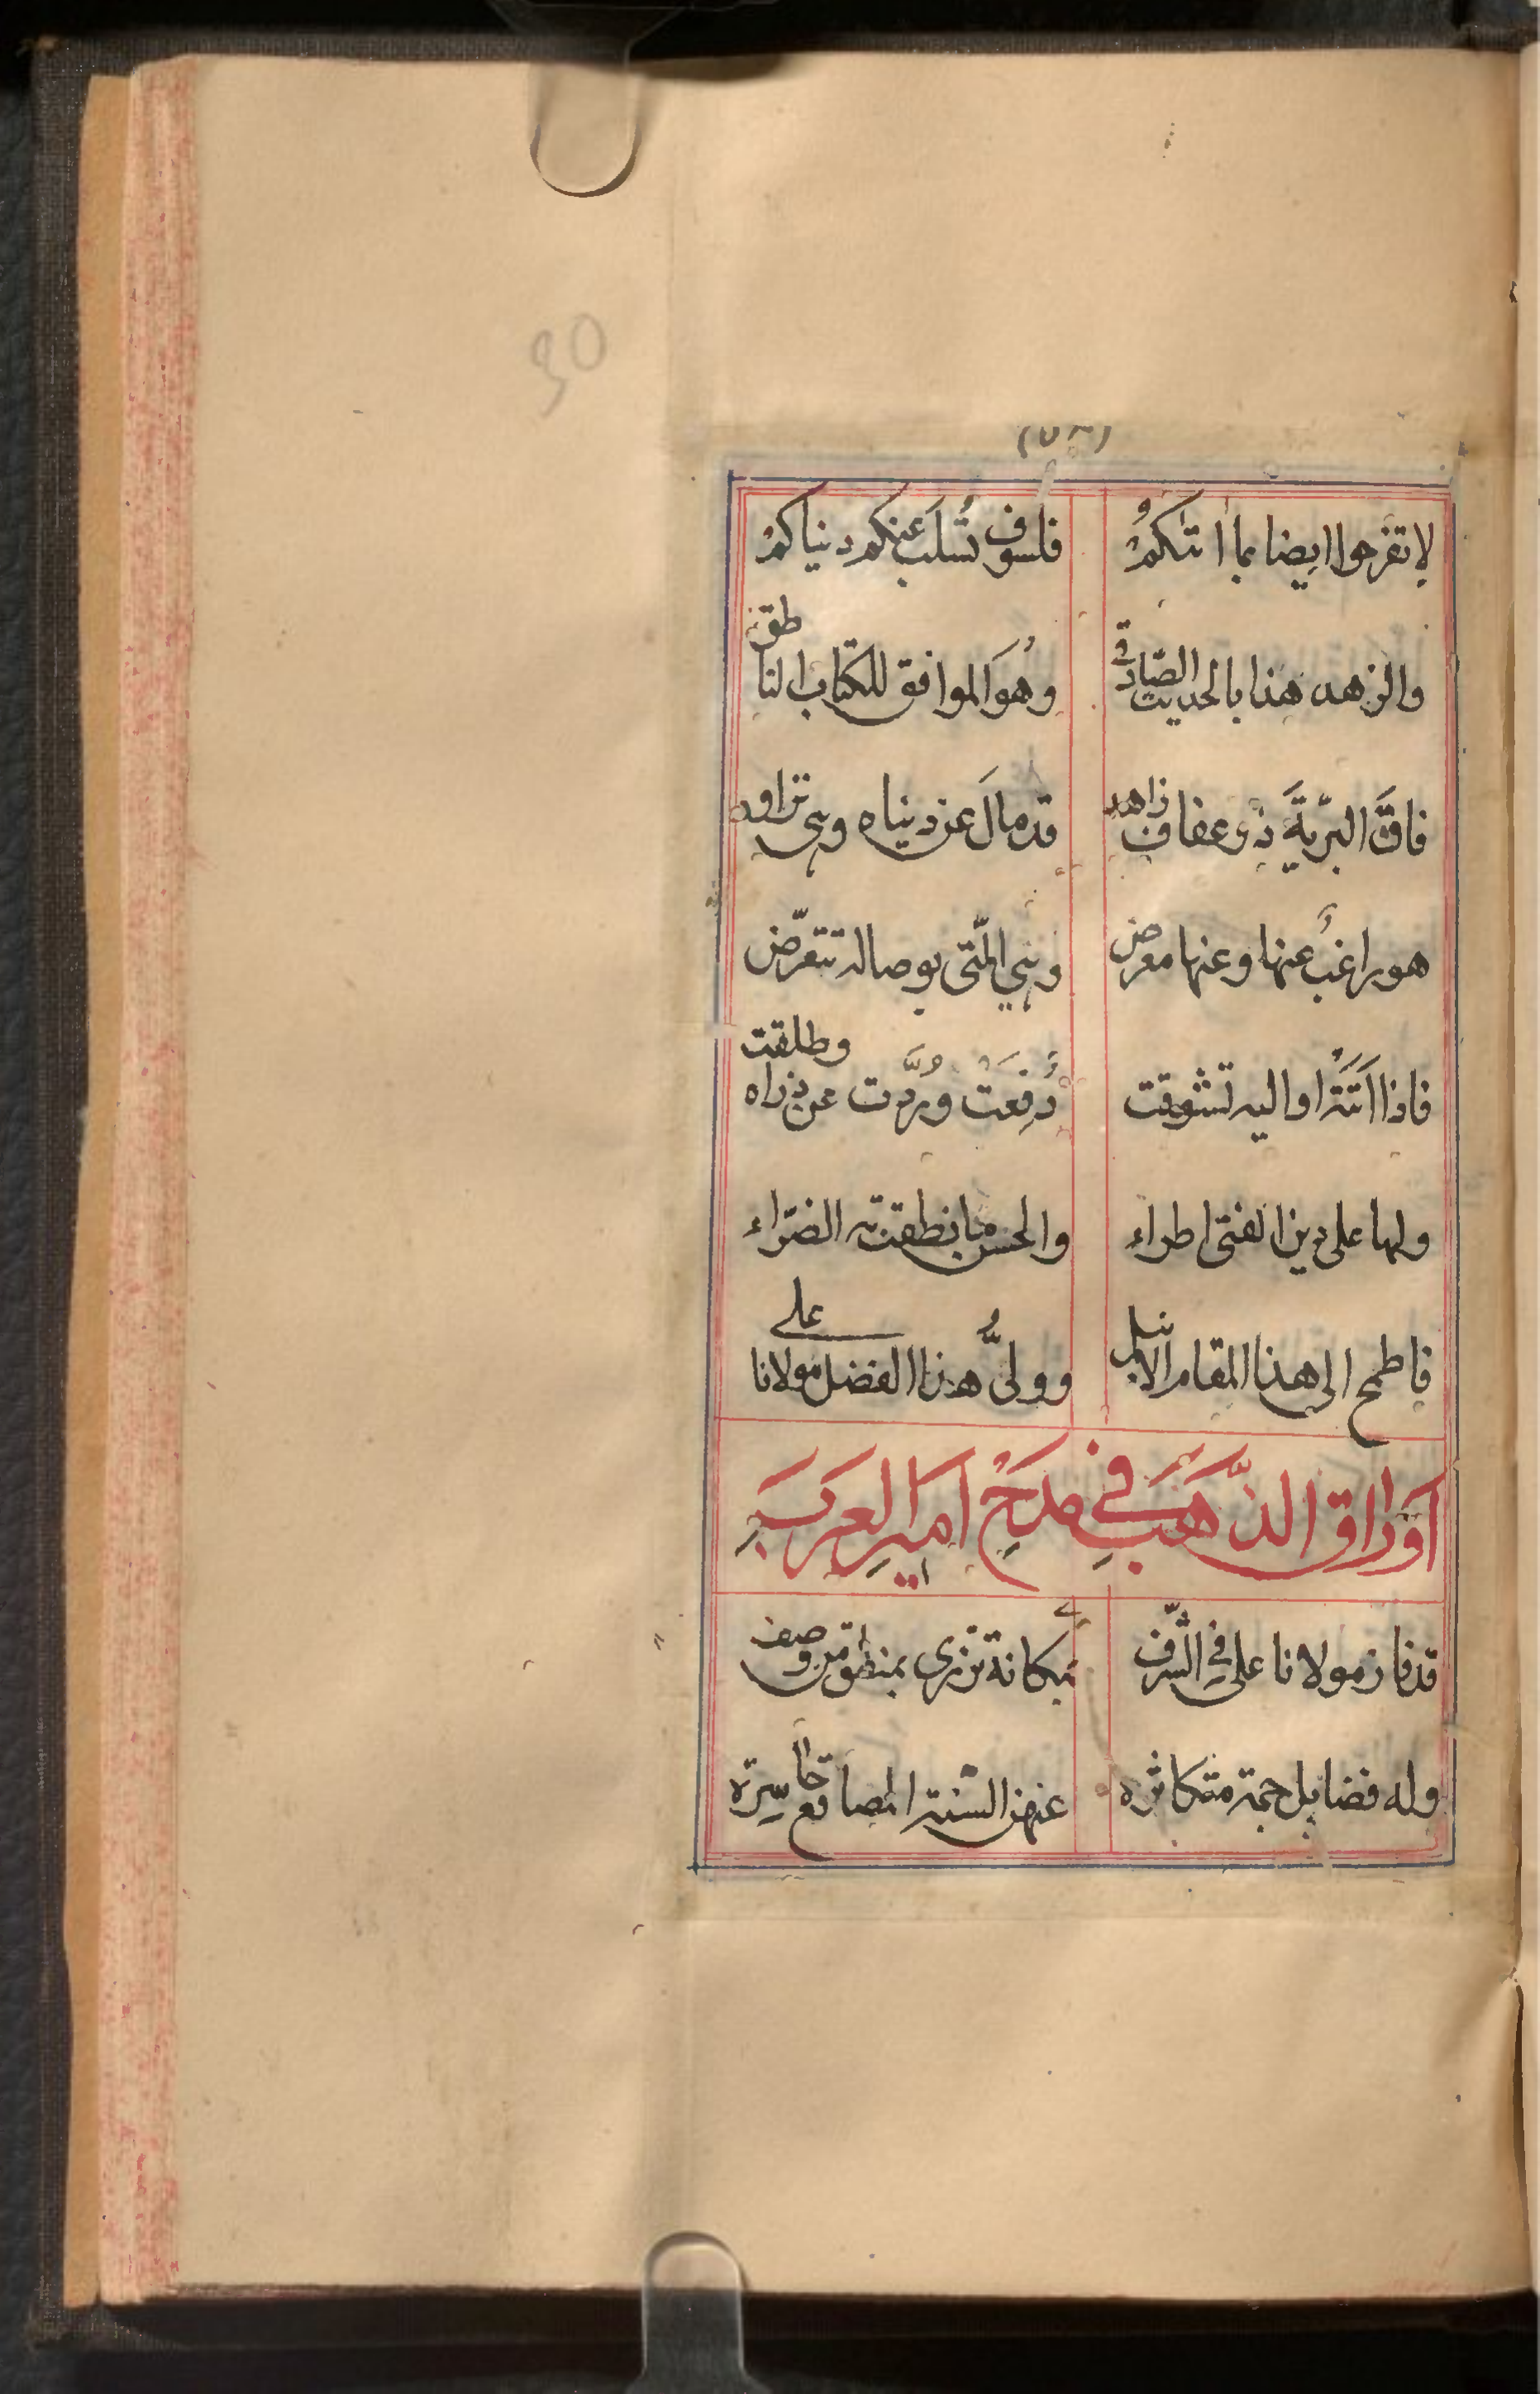 30
لا تفرحوا ايضا بما اتٰىكُمْ فلسوف تُسلَب عنكم دنياكمْ
والزهد هذا بالحديث الصّادق وهُوَ الموافق للكتاب الناطق
فاقَ البرّيةَ ذو عفاف زاهد قد مالَ عن دنياه وهى تراود
هو راغبٌ عنها وعنها معرض وهي الّتى بوصاله تتعرّض
فاذا اَتَتْهُ او اليه تشوقت دُفِعَتْ ورُدَّت عن ذراه وطلقت
ولها على دين الفتى اطراء والحسن ما نطقت به الضرّاء
فاطمح الى هذا المقام الانبل ووليُّ هذا الفضل مولانا على
اَوراق الذَّهَبِ في مَدحِ اَميرِ العَرَبِ
قد فاز مولانا على في الشّرف بمكانة تزرى بمنطق من وصف
وله فضايل جمة متكاثره عنهن السنة المصاقع حاسرة